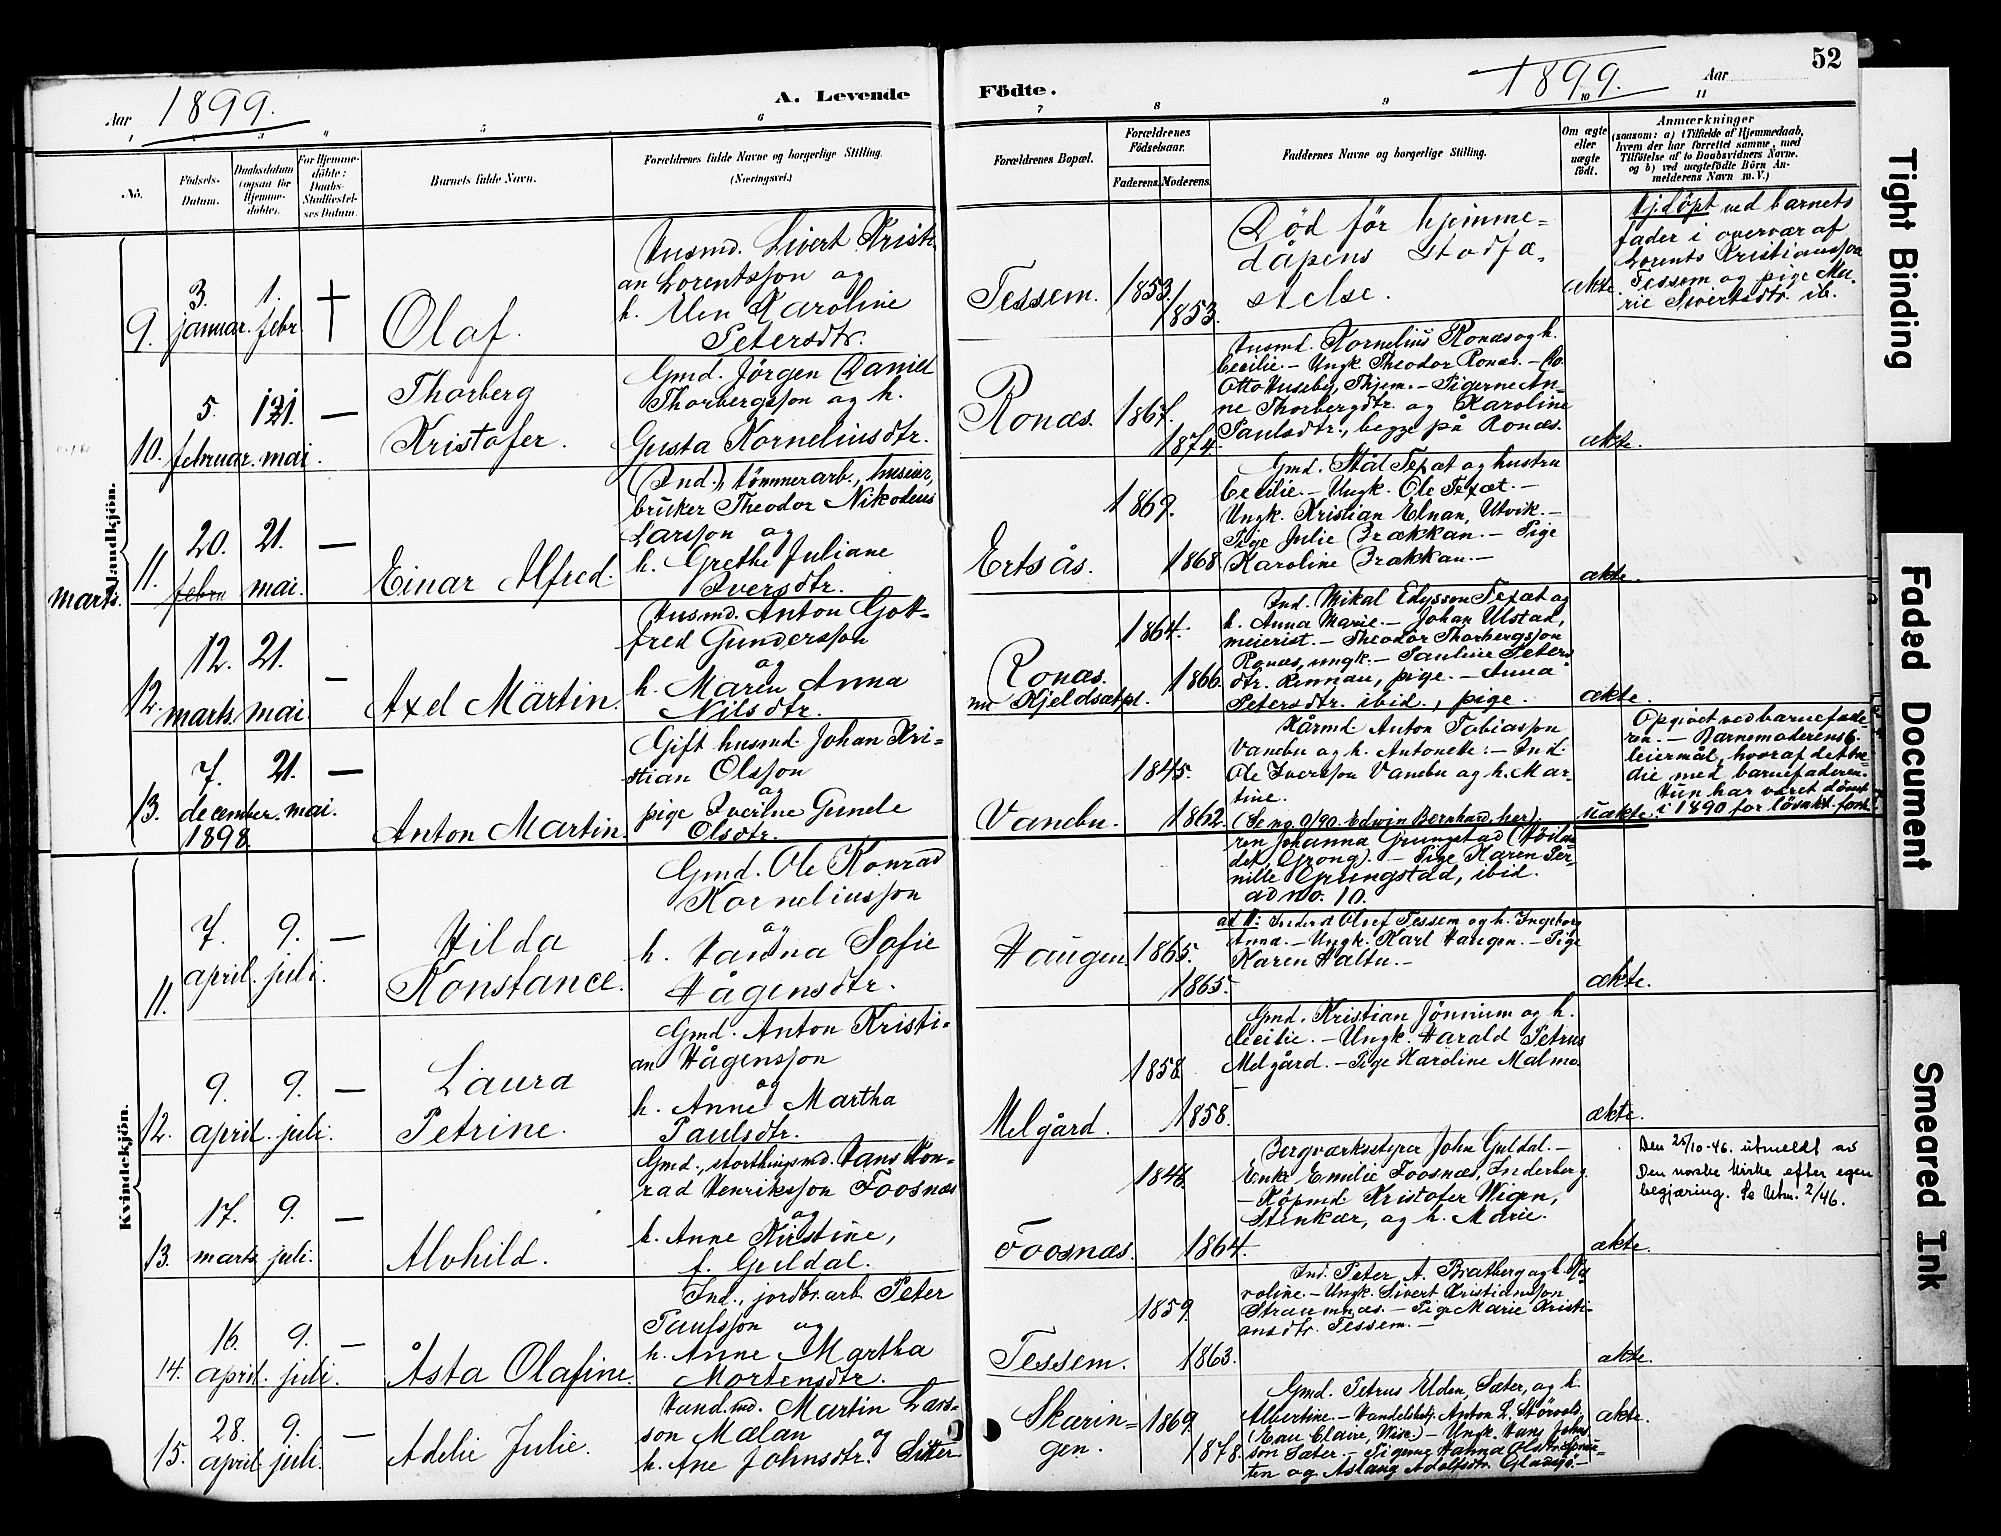 52
Aar 1899.
A. Levende
Födte.
1899. Aar
1 2 3 4 5 6
7 8 9 10 11
No.
Födsels-Datum.
Daabsdatum (ogsaa for Hjemme-döbte).
For Hjemme-döbte: Daabs-Stadfæstel-ses Datum.
Barnets fulde Navn.
Forældrenes fulde Navne og borgerlige Stilling.
(Næringsvei.)
Forældrenes Bopæl.
Forældrenes Födselsaar.
Faderens. Moderens.
Faddernes Navne og borgerlige Stilling.
Om ægte eller uægte födt.
Anmærkninger
(saasom: a) i Tilfælde af Hjemmedaab,
hvem der har forrettet samme, med
Tilföielse af to Daabsvidners Navne.
og b) ved uægtefödte Börn An-
melderens Navn m. V.)
Mandkjön.
9. 3. januar. 1. febr. †
Olaf.
Husmd. Sivert Kristi-
an Lorentsson og
h. Elen Karoline
Petersdtr.
Tessem. 1853. 1853.
Död för hjemme-
dåpens stadfæ-
stelse.
ækte.
Hj.döpt ved barnets
fader i overvær af
Lorents Kristiansson
Tessem og pige Ma-
rie Sivertsdtr. ib.
10. 5. februar. 21. mai. —
Thorberg
Kristofer.
Gmd. Jörgen Daniel
Thorbergsson og h.
Gusta Korneliusdtr.
Ronæs. 1867. 1874.
Husmd. Kornelius Ronæs og h.
Cecilie. — Ungk. Theodor Ronæs. —
Otto Huseby, Skjem. — Pigerne An-
ne Thorbergdtr. og Karoline
Paulsdtr., begge på Ronæs.
ækte.
marts.
11. 20. febru 21. mai. —
Einar Alfred.
(Ind.) tömmerarb., huseier,
bruker Theodor Nikodeus
Larsson og
h. Grethe Juliane
Iversdtr.
Ertsås. 1869. 1868.
Gmd. Stål Texæt og hustru
Cecilie. — Ungk. Ole Texæt. —
Ungk. Kristian Elnan, Utvik. —
Pige Julie Brækkan. — Pige
Karoline Brækkan. —
ækte.
12. 12. marts. 21. mai. —
Axel Martin.
Husmd. Anton Got-
fred Gundersson
og
h. Maren Anna
Nilsdtr.
Ronæs.
nu Kjeldsætpl. 1864. 1866.
Ind. Mikal Edysson Texæt og
h. Anna Marie. — Johan Ulstad,
meierist. — Theodor Thorbergsson
Ronæs, ungk. — Pauline Peters
dtr. Rennan, pige. — Anna
Petersdtr. ibid., pige.
ækte.
13. 7. december. 1898. 21. mai. —
Anton Martin.
Gift husmd. Johan Kri-
stian Olsson
og
pige Iverine Gunele
Olsdtr.
Vanebu. 1845. 1862.
Gårmd. Anton Tobiasson
Vanebu og h. Antonette. — Ind.
Ole Iversson Vanebu og h. Mar-
tine.
(Se no. 9/90. Edvin Bernhard, her).
uækte.
Opgivet ved barnefade-
ren. — Barnemoderens 6.
leiermål, hvoraf det tre-
die med barnefaderen.
Hun har været dömt
i 1890 for lösakt. forh.
Kvindekjön.
ren Johanna Grungstad (Höilan-
det, Grong). — Pige Karen Per-
nille Grungstad, ibid.
ad no. 10.
11. 7. april. 9. juli. —
Hilda
Konstance.
Gmd. Ole Konrad
Korneliusson
og
h. Hanna Sofie
Hågensdtr.
Haugen. 1865. 1865.
ad 11: Inderst Oluf Tessem og h. Ingeborg
Anna. — Ungk. Karl Haugen. — Pige
Karen Haltu. —
ækte.
12. 9. april. 9. juli. —
Laura
Petrine.
Gmd. Anton Kristi-
an Hågensson
og
h. Anne Martha
Paulsdtr.
Melgård. 1858. 1858.
Gmd. Kristian Jönnum og h.
Cecilie. — Ungk. Harald Petrus
Melgård. — Pige Karoline Malmo
—
ækte.
13. 17. marts. 9. juli. —
Alvhild.
Gmd., storthingsmd. Hans Kon-
rad Henriksson Foosnæs
og
h. Anne Kirstine,
f. Guldal.
Foosnæs. 1846. 1864.
Bergværksstyrer John Guldal. —
Enke Emilie Foosnæs, Inderberg.
— Köpmd. Kristofer Wigen,
Stenkær, og h. Marie.
ækte.
Den 25/10-46. utmeldt av
Den norske Kirke efter egen
begjæring. Se Utm. 2/46.
14. 16. april. 9. juli. —
Åsta Olafine.
Ind., jordbr.arb. Peter
Paulsson og
h. Anne Martha
Mortensdtr.
Tessem. 1859. 1863.
Ind. Peter A. Bratberg og h. Ka-
roline. — Ungk. Sivert Kristiansson
Straumnæs. — Pige Marie Kristi-
ansdtr. Tessem. —
ækte.
15. 28. april. 9. juli. —
Adelie Julie.
Hand.md. Martin Lars-
son Mælan og
h. Ane Johnsdtr. Sitter
Skærin-
gen. 1869. 1878.
Gmd. Petrus Elden, Sæter, og h.
Albertine. — Handelsbetj. Anton L. Störvold
(Eau Claire, Wisc.) — Ungk. Hans Johns-
son Sæter. — Pigerne Hanna Olsdtr.
ten og Aslaug Adolfsdtr. Gladsjö. —
ækte.
Tight Binding
Faded Document
Smeared Ink